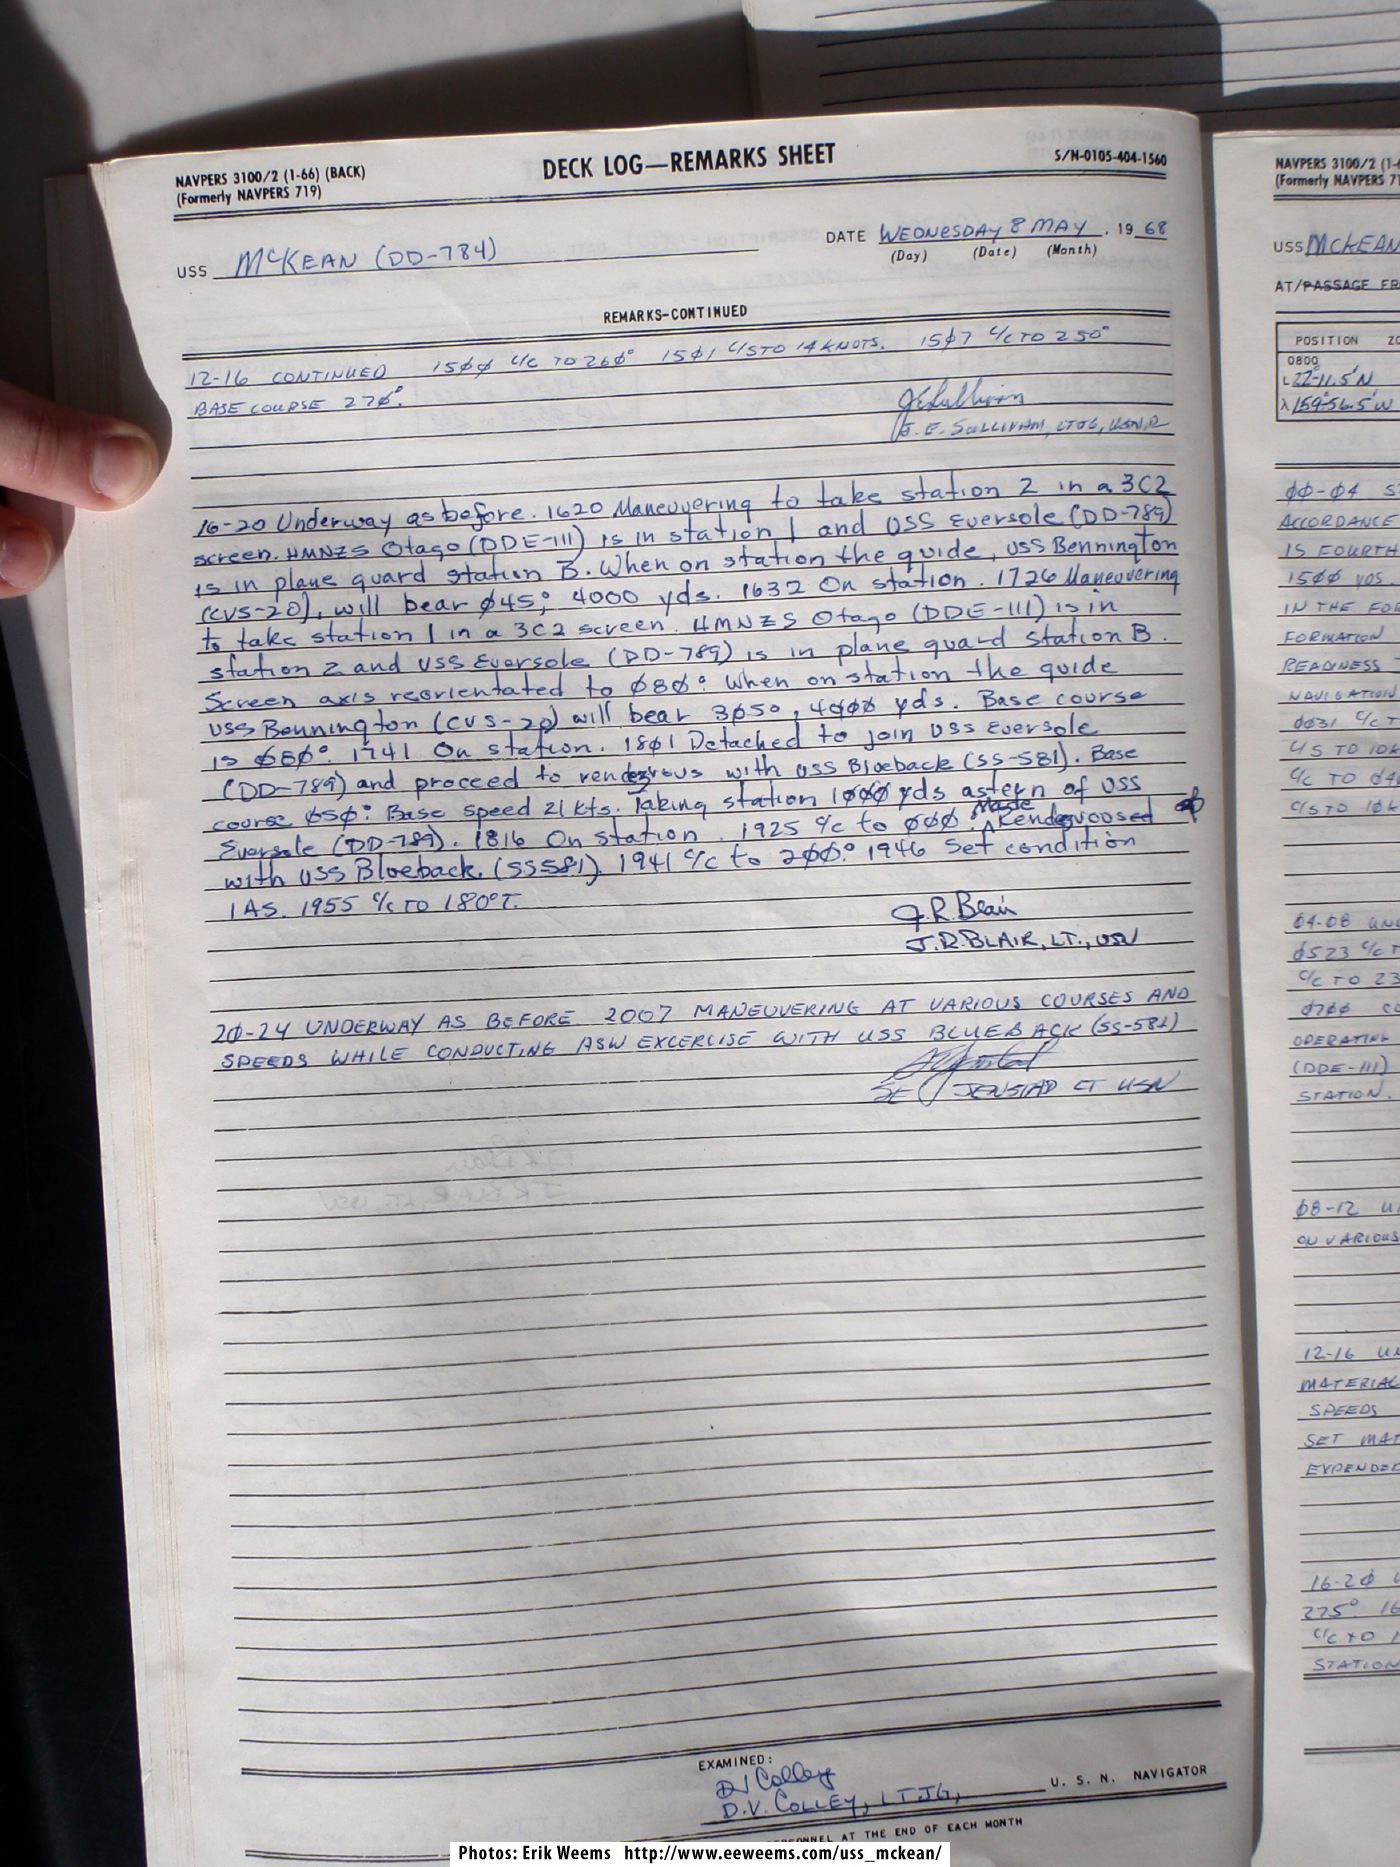 NAVPERS 3100/2 (1-66) (BACK)
(Formerly NAVPERS 719)
DECK LOG—REMARKS SHEET
S/N-0105-404-1560
USS McKEAN (DD-784)
DATE WEDNESDAY 8 MAY, 1968
(Day) (Date) (Month)
REMARKS-CONTINUED
12-16 CONTINUED 15ØØ C/C TO 26Ø° 15Ø1 C/S TO 14 KNOTS. 15Ø7 C/C TO 25Ø°
BASE COURSE 27Ø°.
J E Sullivan
J. E. SULLIVAN, LTJG, USNR
16-20 Underway as before. 1620 Maneuvering to take station 2 in a 3C2
screen. HMNZS Otago (DDE-111) is in station 1 and USS Eversole (DD-789)
is in plane guard station B. When on station the guide, USS Bennington
(CVS-20), will bear Ø45°, 4000 yds. 1632 On station. 1726 Maneuvering
to take station 1 in a 3C2 screen. HMNZS Otago (DDE-111) is in
station 2 and USS Eversole (DD-789) is in plane guard station B.
Screen axis reorientated to Ø8Ø°. When on station the guide
USS Bennington (CVS-2Ø) will bear 3Ø5°, 4ØØØ yds. Base course
is Ø8Ø°. 1741 On station. 18Ø1 Detached to join USS Eversole
(DD-789) and proceed to rendezvous with USS Blueback (SS-581). Base
course Ø5Ø°. Base speed 21 kts. Taking station 1ØØØ yds astern of USS
Eversole (DD-789). 1816 On station. 1925 C/c to ØØØ. Made Rendezvoosed
with USS Blueback. (SS581). 1941 C/c to 2ØØ°. 1946 Set condition
1AS. 1955 C/c TO 180°T.
J.R. Blair
J.R. BLAIR, LT., USN
2Ø-24 UNDERWAY AS BEFORE. 2007 MANEUVERING AT VARIOUS COURSES AND
SPEEDS WHILE CONDUCTING ASW EXCERCISE WITH USS BLUEBACK (SS-581)
JENSTAD LT USN
EXAMINED:
DV Colley
D.V. COLLEY, LTJG, U. S. N. NAVIGATOR
AT THE END OF EACH MONTH
NAVPERS 3100/2 (1-
(Formerly NAVPERS 71
USS MCKEAN
AT/PASSAGE FR
POSITION ZO
0800
L 22-11.5'N
λ 159-56.5'W
ØØ-Ø4 S
ACCORDANCE
IS FOURTH
15ØØ YDS
IN THE FOR
FORMATION
READINESS
NAVIGATION
ØØ31 C/C T
C/S TO 10K
C/C TO Ø4
C/S TO 10K
Ø4-Ø8 UND
Ø523 C/C T
C/C TO 23
Ø7ØØ CO
OPERATING
(DDE-111)
STATION.
Ø8-12 U
ON VARIOUS
12-16 UN
MATERIAL
SPEEDS
SET MAT
EXPENDED
16-2Ø U
275° 16
C/C TO 1
STATION
Photos: Erik Weems http://www.eeweems.com/uss_mckean/